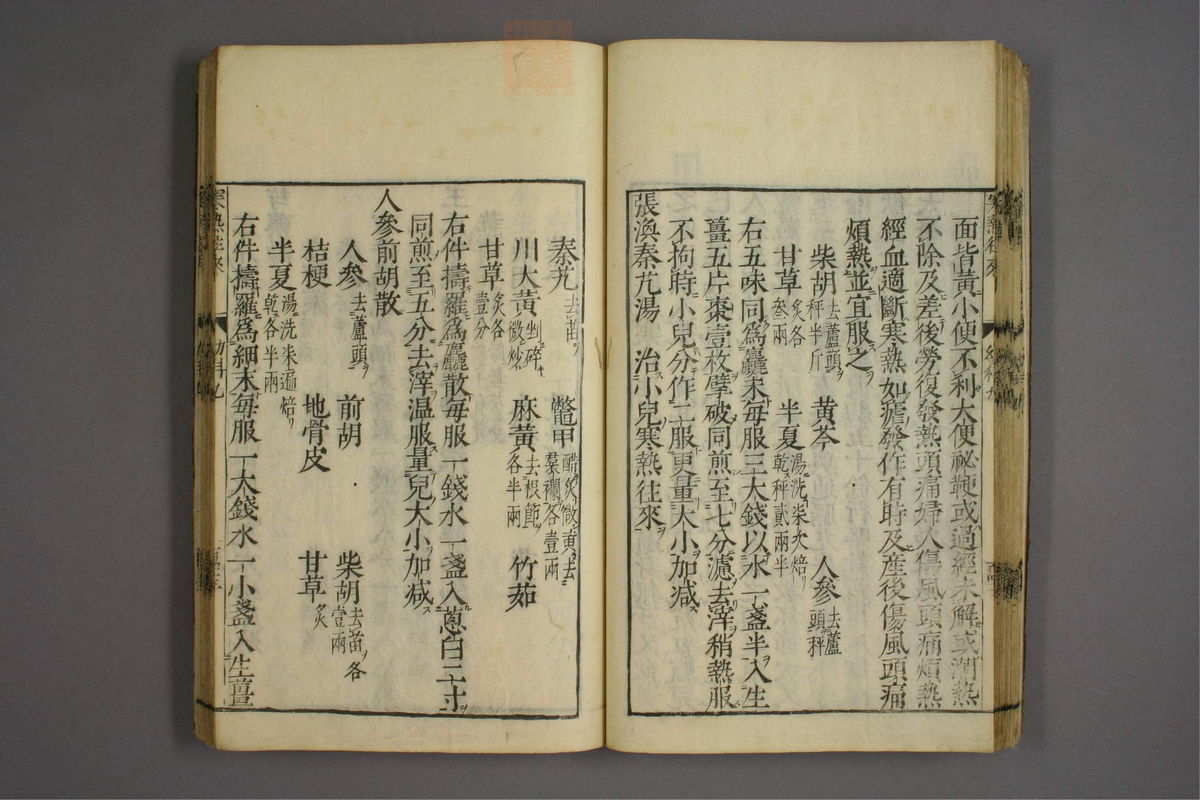 面皆黃小便不利大便祕鞕或過經未解或潮熱
不除及差後勞復發熱頭痛婦人傷風頭痛煩熱
經血適斷寒熱如瘧發作有時及産後傷風頭痛
煩熱並宜服之
柴胡去蘆頭秤半斤 黃芩 人參去蘆頭秤
甘草炙各叁兩 半夏湯洗柒次焙乾秤貳兩半
右五味同爲麤末每服三大錢以水一盞半入生
薑五片棗壹枚擘破同煎至七分濾去滓稍熱服
不拘時小兒分作二服更量大小加減
張渙秦艽湯 治小兒寒熱往來
秦艽去苗 鼈甲醋炙微黃去裙襴各壹兩
川大黃剉碎微炒 麻黃去根節各半兩 竹茹
甘草炙各壹分
右件擣羅爲麤散每服一錢水一盞入蔥白二寸
同煎至五分去滓温服量兒大小加减
人參前胡散
人參去蘆頭 前胡 柴胡去苗各壹兩
桔梗 地骨皮 甘草炙
半夏湯洗柒遍焙乾各半兩
右件擣羅爲細末每服一大錢水一小盞入生薑
寒熱往來
幼科九